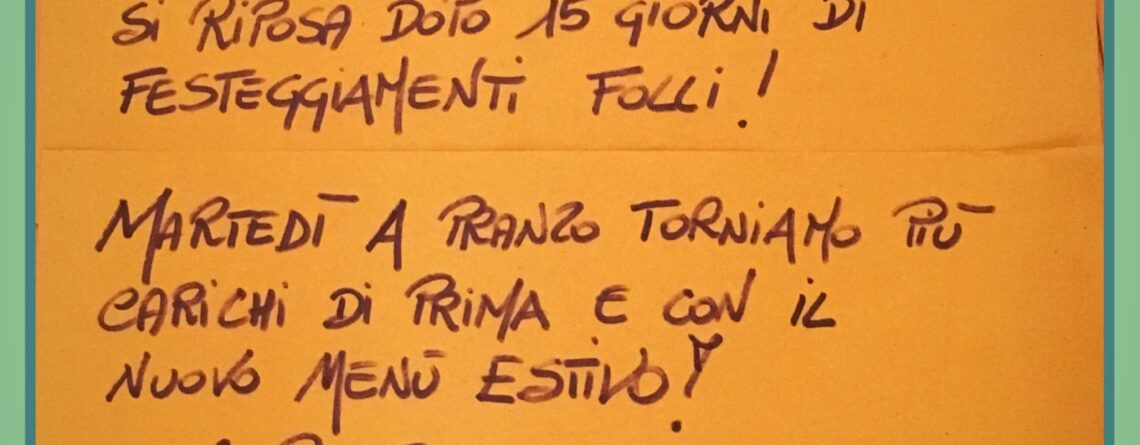 Si RiPOSA DOPO 15 GiORNi Di
FESTEGGiAMENTi FOLLi!
MARTEDÌ A PRANZO TORNiAMO PiÙ
CARiCHi Di PRiMA E CON iL
NUOVO MENÙ ESTiVO!